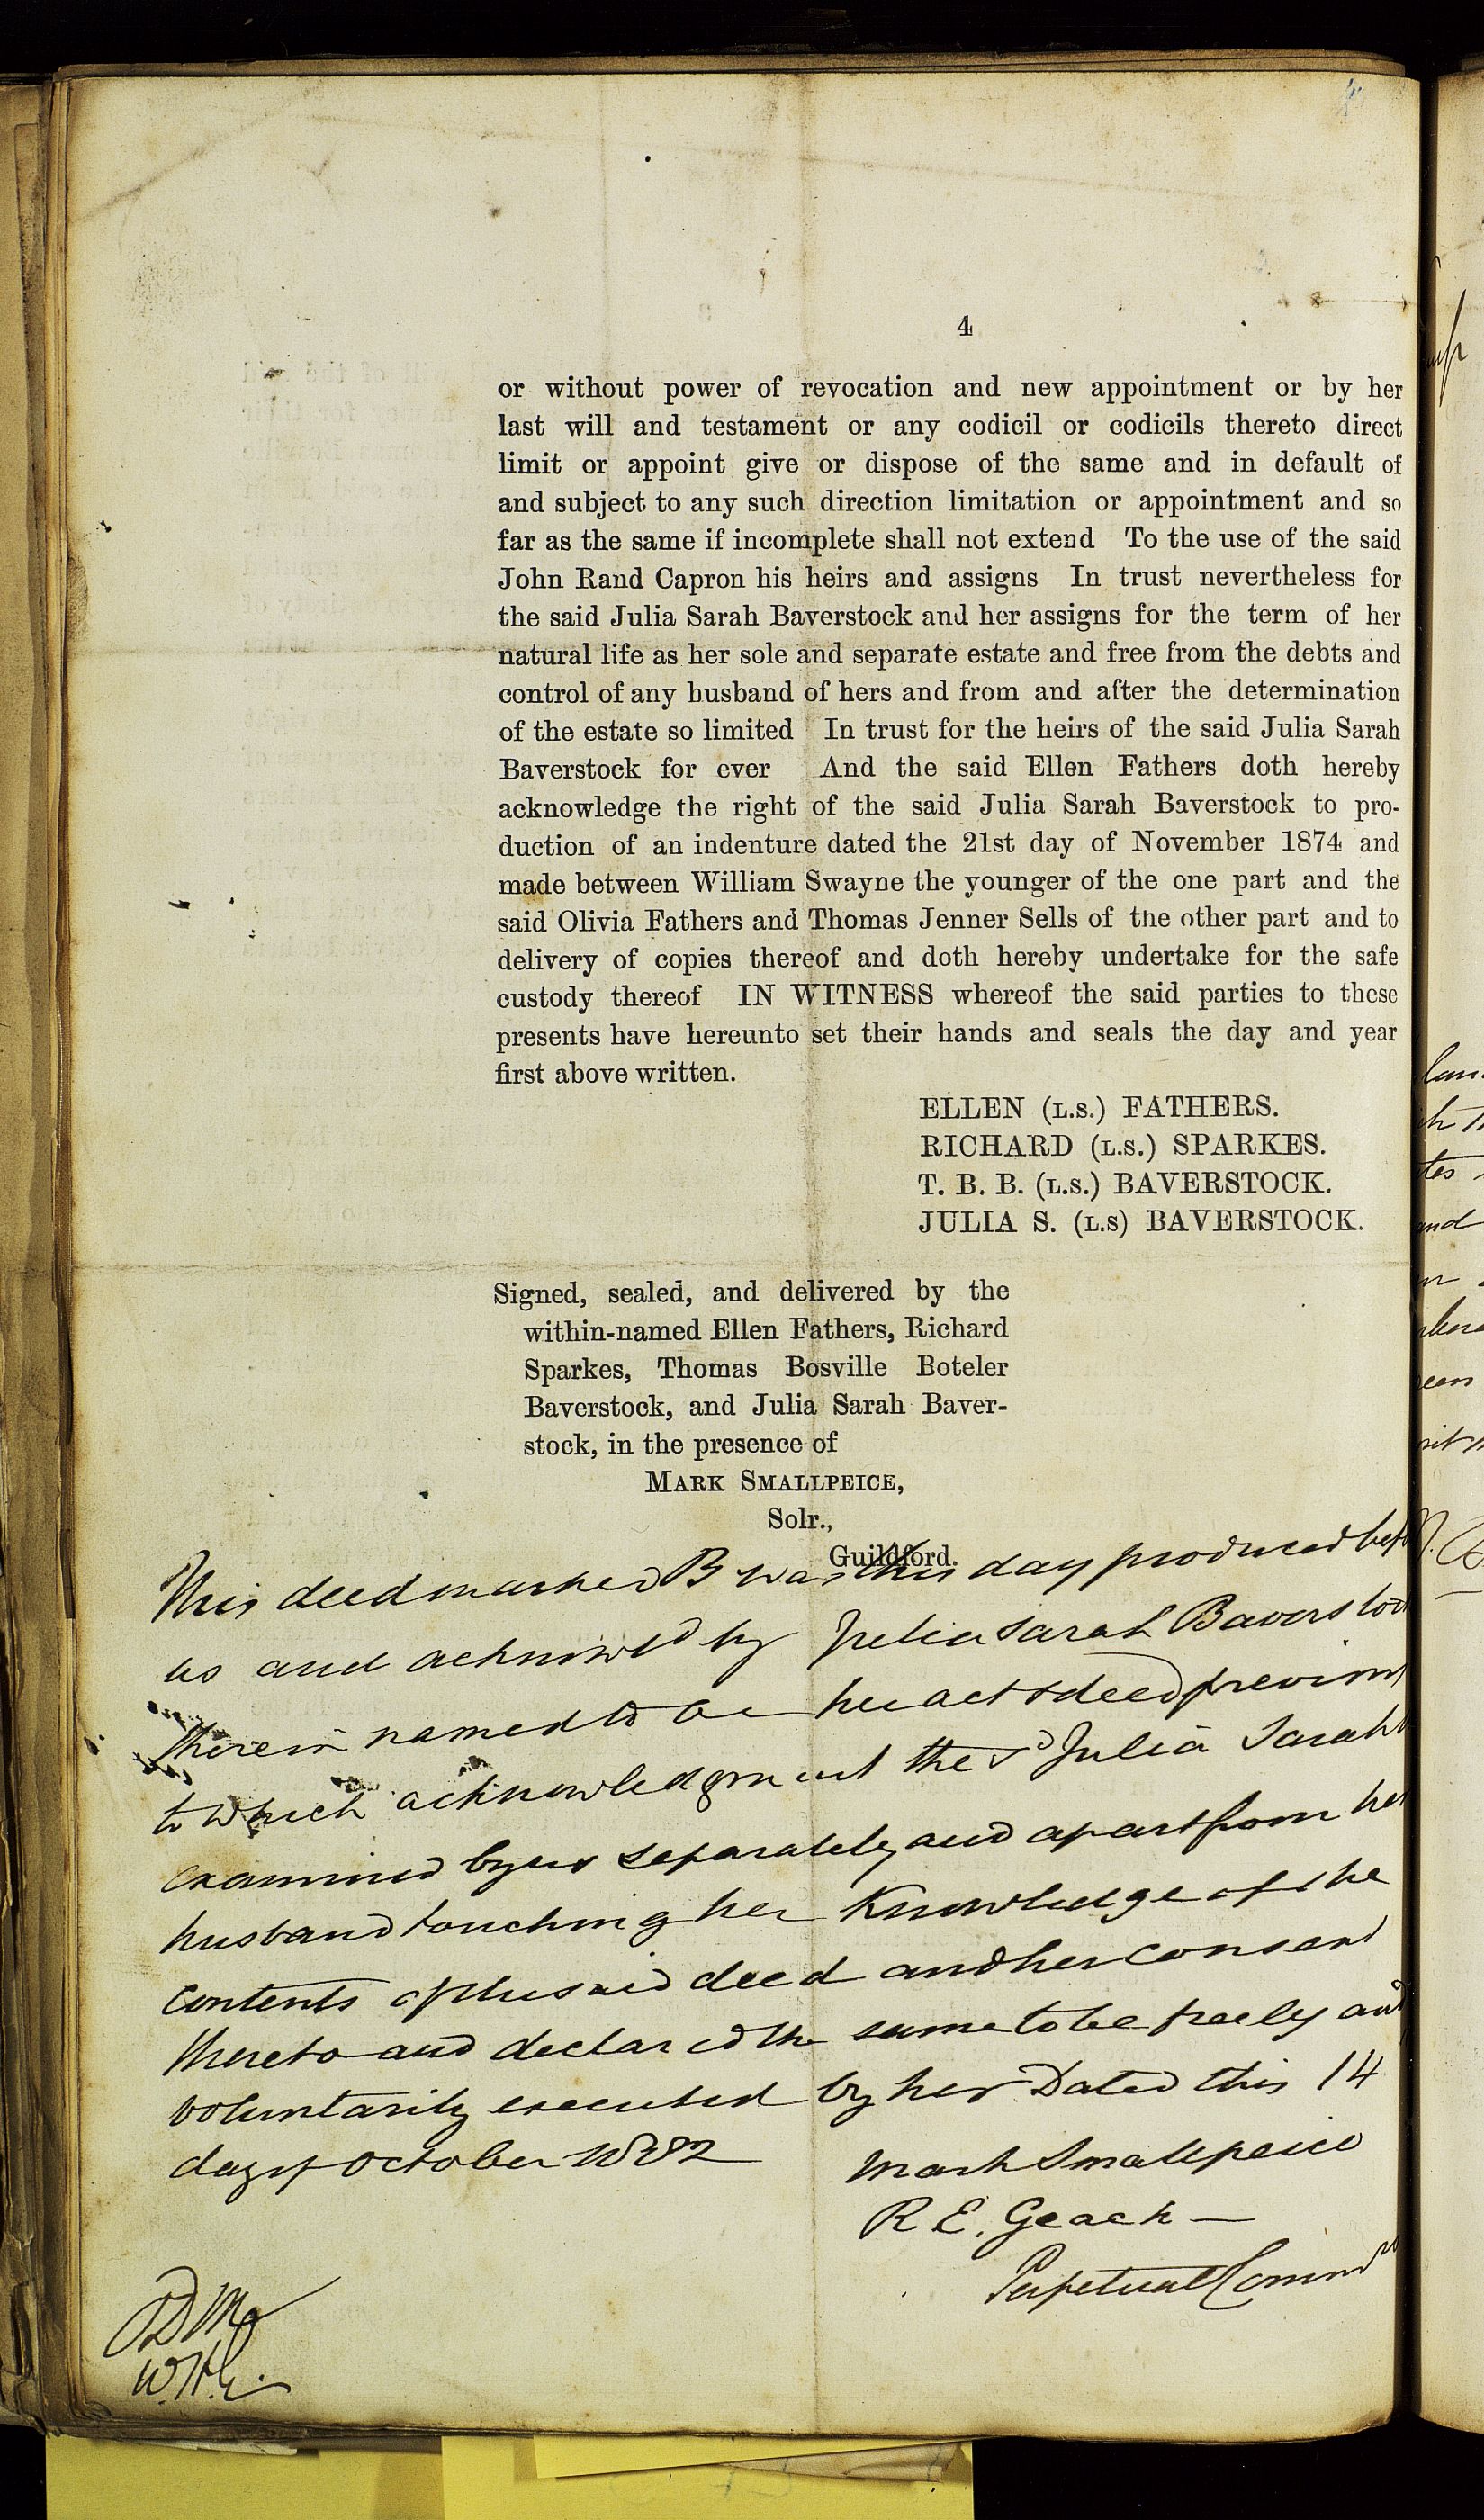 4
or without power of revocation and new appointment or by her
last will and testament or any codicil or codicils thereto direct
limit or appoint give or dispose of the same and in default of
and subject to any such direction limitation or appointment and so
far as the same if incomplete shall not extend To the use of the said
John Rand Capron his heirs and assigns In trust nevertheless for
the said Julia Sarah Baverstock and her assigns for the term of her
natural life as her sole and separate estate and free from the debts and
control of any husband of hers and from and after the determination
of the estate so limited In trust for the heirs of the said Julia Sarah
Baverstock for ever And the said Ellen Fathers doth hereby
acknowledge the right of the said Julia Sarah Baverstock to pro-
duction of an indenture dated the 21st day of November 1874 and
made between William Swayne the younger of the one part and the
said Olivia Fathers and Thomas Jenner Sells of the other part and to
delivery of copies thereof and doth hereby undertake for the safe
custody thereof IN WITNESS whereof the said parties to these
presents have hereunto set their hands and seals the day and year
first above written.
ELLEN (L.S.) FATHERS.
RICHARD (L.S.) SPARKES.
T. B. B. (L.S.) BAVERSTOCK.
JULIA S. (L.S) BAVERSTOCK.
Signed, sealed, and delivered by the
within-named Ellen Fathers, Richard
Sparkes, Thomas Bosville Boteler
Baverstock, and Julia Sarah Baver-
stock, in the presence of
MARK SMALLPEICE,
Solr.,
Guildford.
This deed marked B was this day produced bef
us and acknowld by Julia Sarah Baverstock
therein named to be her act & deed previous
to which acknowledgment the sd Julia Sarah
examined by us separately and apart from her
husband touching her knowledge of the
contents of the said deed and her consent
thereto and declared the same to be freely and
voluntarily executed by her Dated this 14
day of October 1882
Mark Smallpeice
R E. Geach —
Perpetual Commrs
W.H.G.